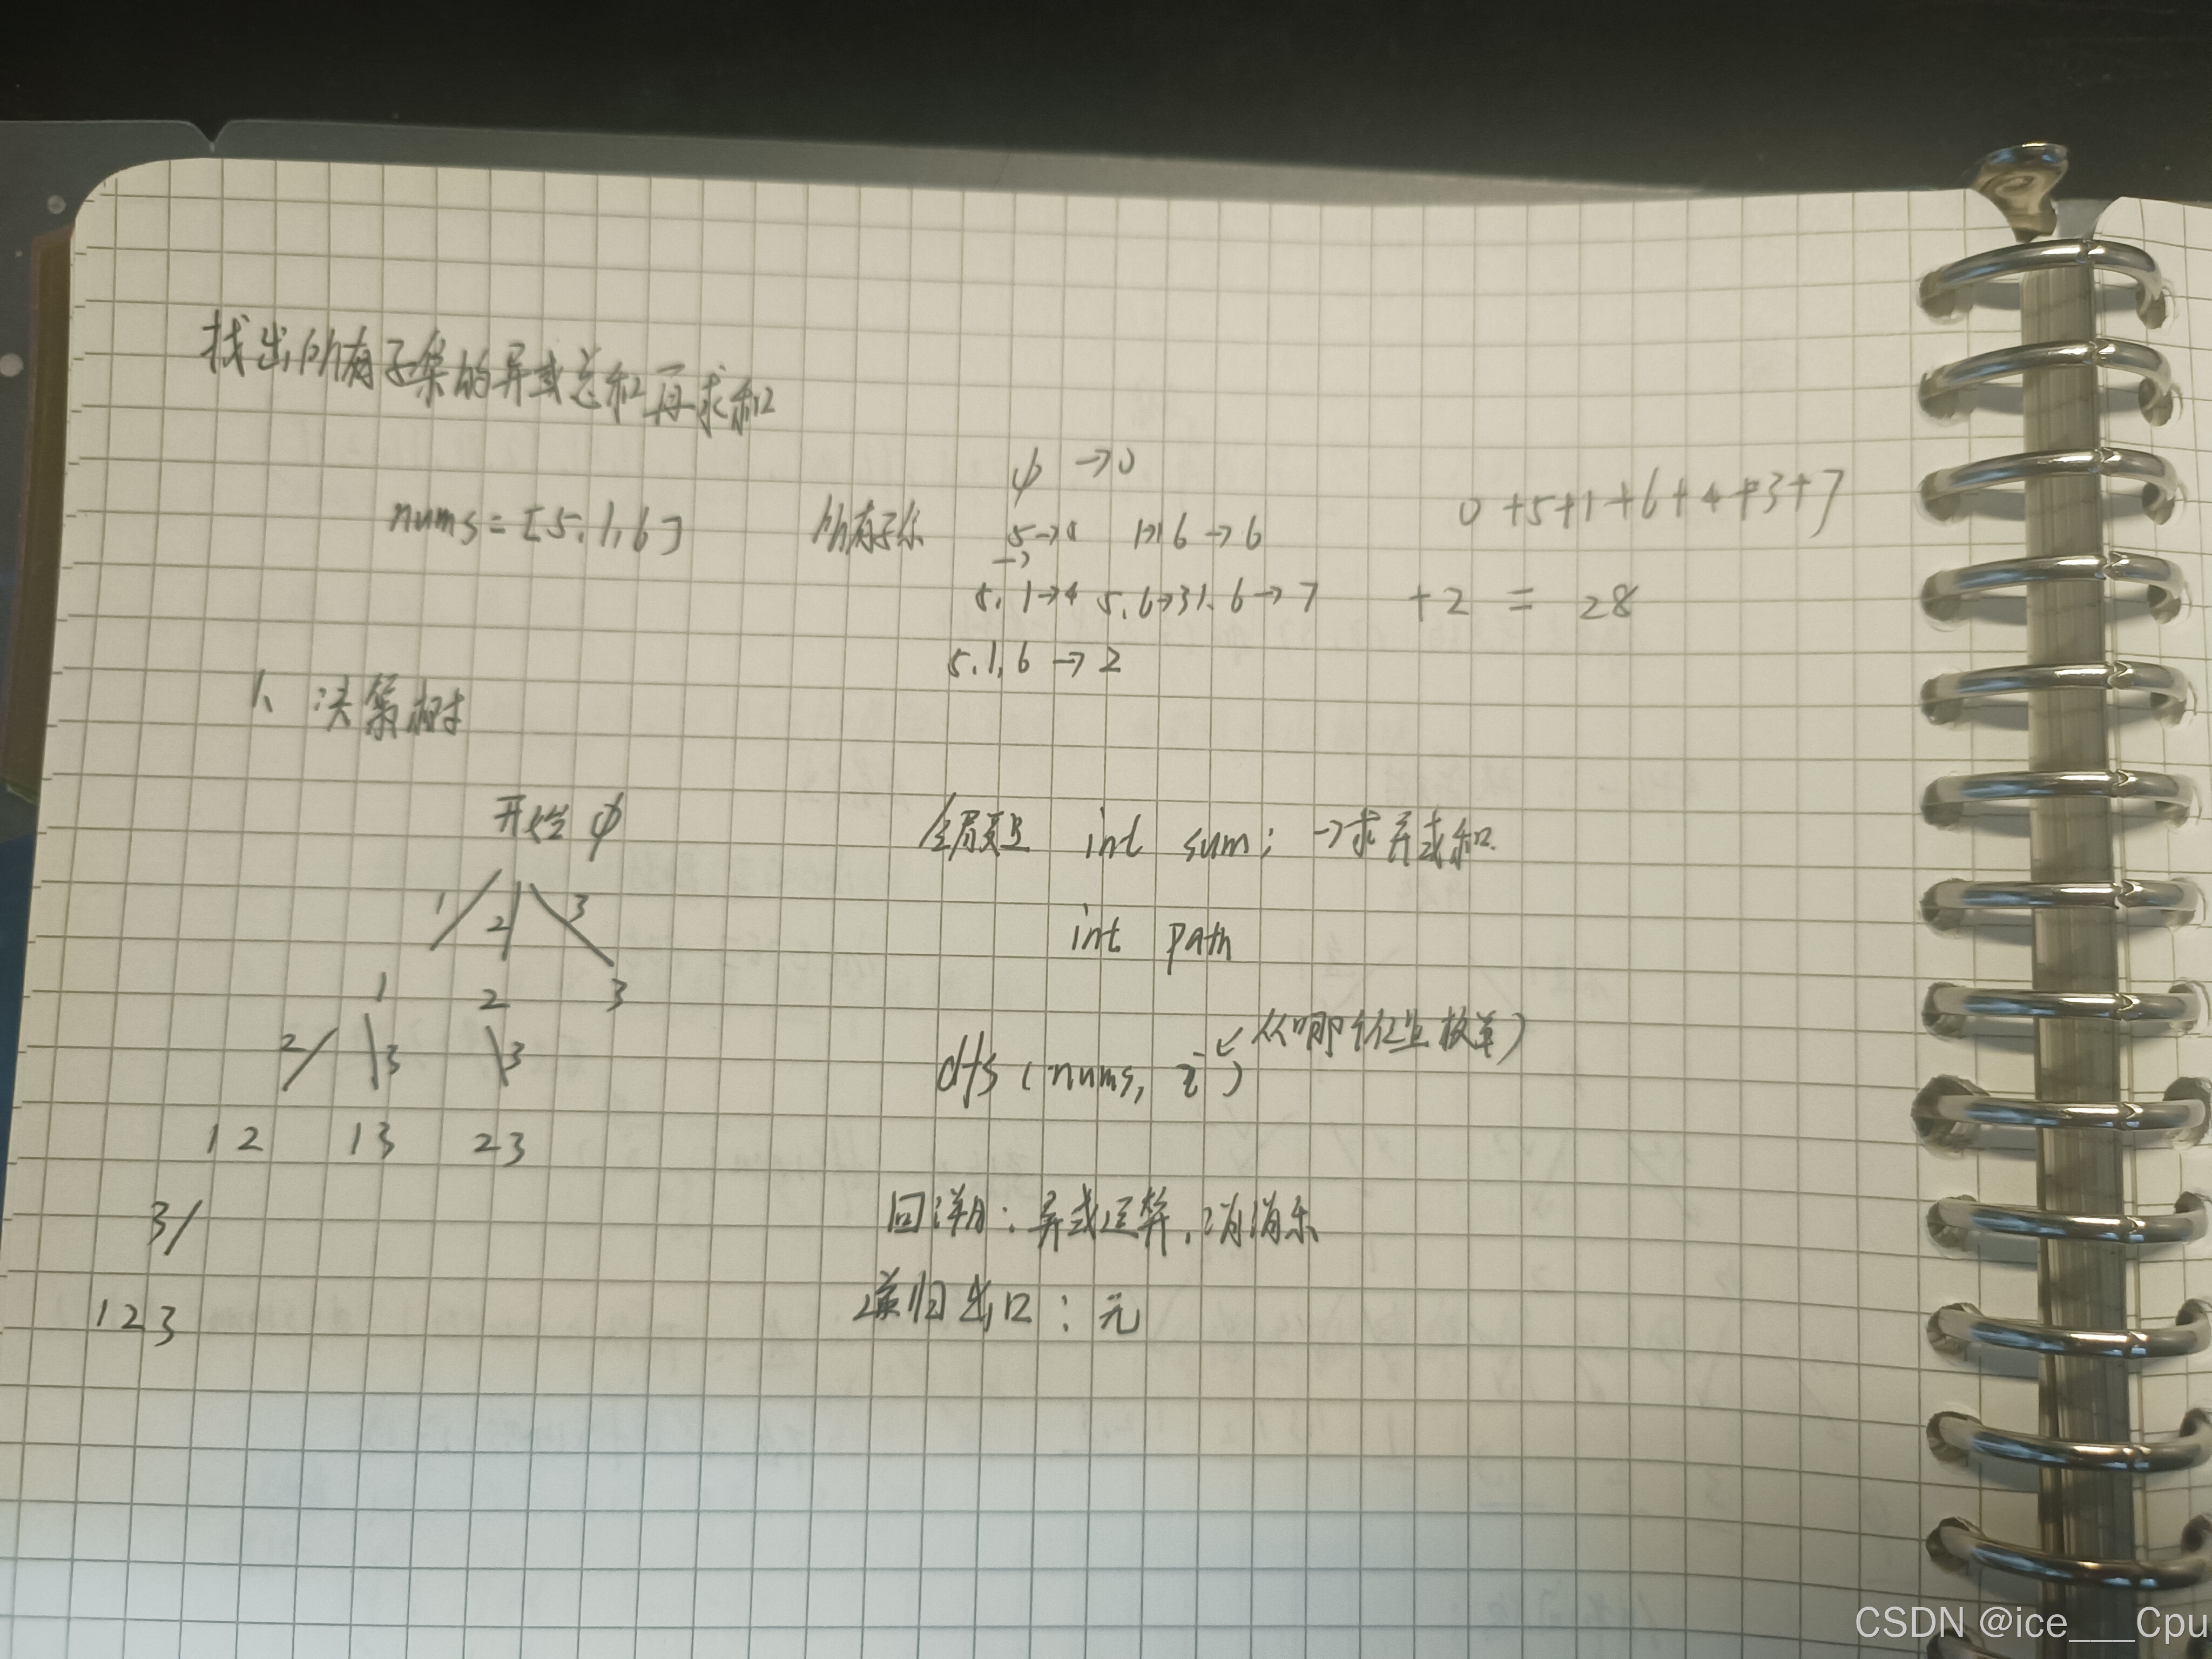 找出所有子集的异或总和再求和
nums = [5, 1, 6]
所有子集
φ → 0
5 → 1→1 6 → 6
5, 1→4 5, 6→3 1, 6→7
5, 1, 6 → 2
0 +5+1+6+4+3+7
+2 = 28
1、决策树
开始 φ
1 2 3
1 2 3
2 3 3
12 13 23
3
123
全局变量 int sum; →求异或和.
int path
dfs (nums, i) ← 从哪个位置枚举)
回溯:异或运算,消消乐
递归出口:无
CSDN @ice___Cpu